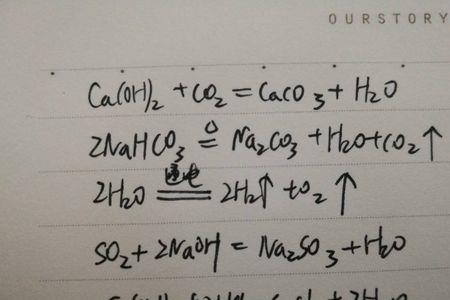 OURSTORY
Ca(OH)₂ + CO₂ = CaCO₃ + H₂O
2NaHCO₃ ≜ Na₂CO₃ + H₂O + CO₂↑
通电
2H₂O ═ 2H₂↑ + O₂↑
SO₂ + 2NaOH = Na₂SO₃ + H₂O